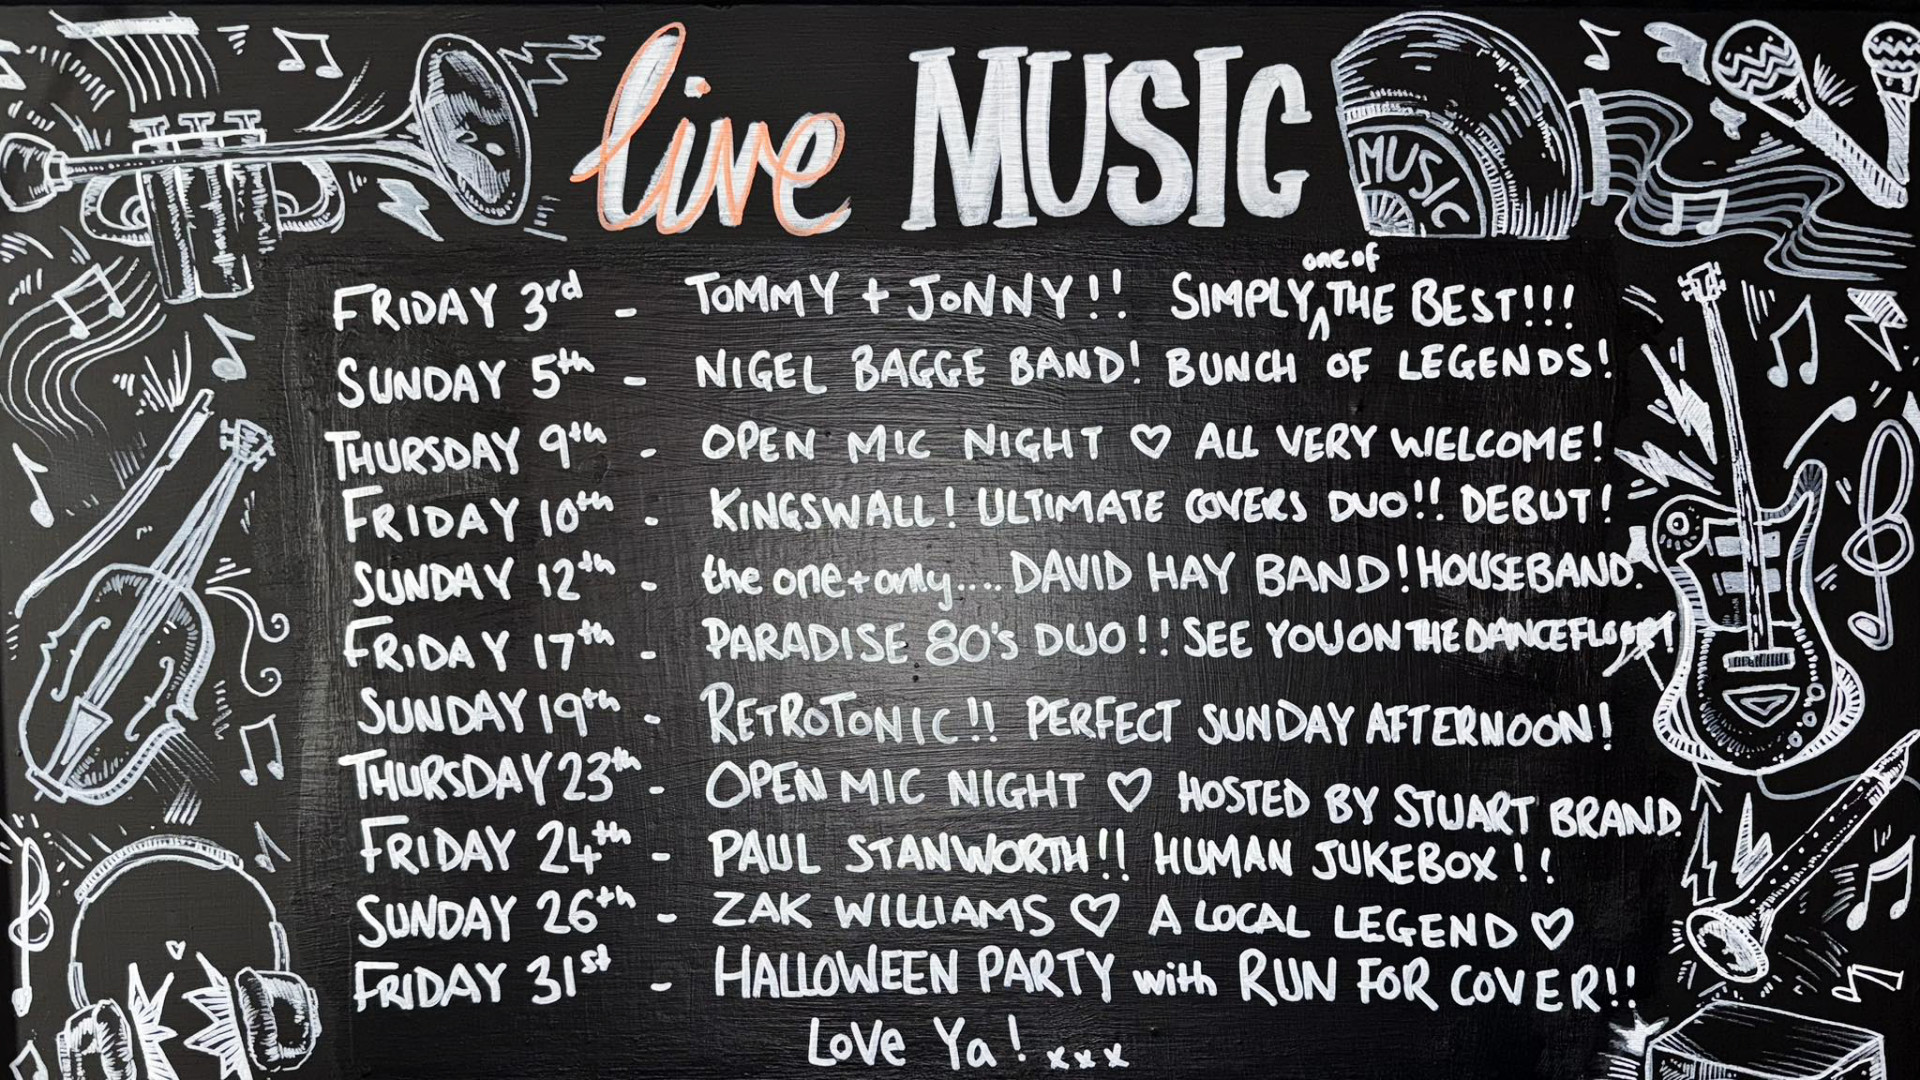 live MUSIC
MUSIC
FRIDAY 3rd - TOMMY + JONNY!! SIMPLY one of THE BEST!!!
SUNDAY 5th - NIGEL BAGGE BAND! BUNCH OF LEGENDS!
THURSDAY 9th - OPEN MIC NIGHT ♡ ALL VERY WELCOME!
FRIDAY 10th - KINGSWALL! ULTIMATE COVERS DUO!! DEBUT!
SUNDAY 12th - the one+only.... DAVID HAY BAND! HOUSEBAND!
FRIDAY 17th - PARADISE 80's DUO!! SEE YOU ON THE DANCEFLOOR!
SUNDAY 19th - RETROTONIC!! PERFECT SUNDAY AFTERNOON!
THURSDAY 23th - OPEN MIC NIGHT ♡ HOSTED BY STUART BRAND.
FRIDAY 24th - PAUL STANWORTH!! HUMAN JUKEBOX!!
SUNDAY 26th - ZAK WILLIAMS ♡ A LOCAL LEGEND ♡
FRIDAY 31st - HALLOWEEN PARTY with RUN FOR COVER!!
LOVE Ya! xxx